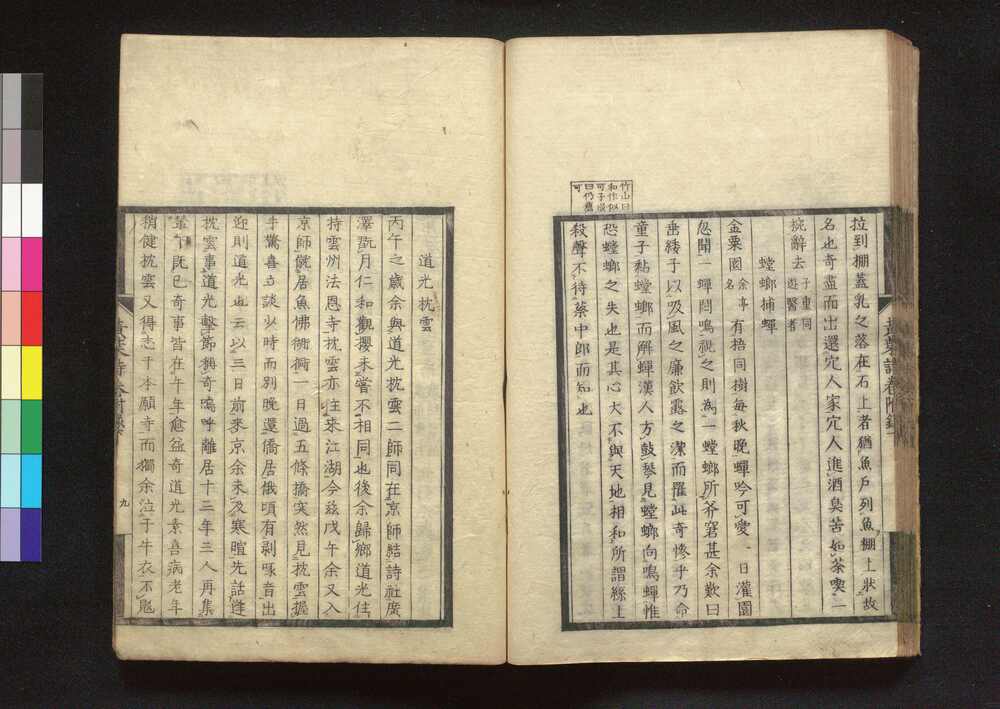 竹山曰
和作似
可子
曰仍舊
可
拉到棚蓋乳之落在石上者猶魚戶列魚棚上狀故
名也奇盡而出還穴人家穴人進酒臭苦如茶喫一
捥辭去子重同遊醫者
螳螂捕蟬
金粟園余亭名有梧同樹每秋晚蟬吟可愛一日灌園
忽聞一蟬悶鳴視之則為一螳螂所斧窘甚余歎曰
齒緌子以吸風之廉飲露之潔而罹此奇慘乎乃命
童子黏螳螂而解蟬漢人方鼓琴見螳螂向鳴蟬惟
恐螳螂之失也是其心大不與天地相和所謂絲上
殺聲不待蔡中郎而知也
黃葉詩卷附錄
道光枕雲
丙午之歲余與道光枕雲二師同在京師結詩社廣
澤翫月仁和觀櫻未嘗不相同也後余歸鄉道光住
持雲州法恩寺枕雲亦往來江湖今茲戊午余又入
京師僦居魚佛衕衕一日過五條橋突然見枕雲握
手驚喜立談少時而別晚還僑居俄頃有剝啄音出
迎則道光也云以三日前來京余未及寒暄先話逢
枕雲事道光擊節稱奇嗚呼離居十三年三人再集
輦下既已奇事皆在午年愈益奇道光素喜病老年
稍健枕雲又得志于本願寺而獨余泣于牛衣不
黃葉詩卷附錄
九